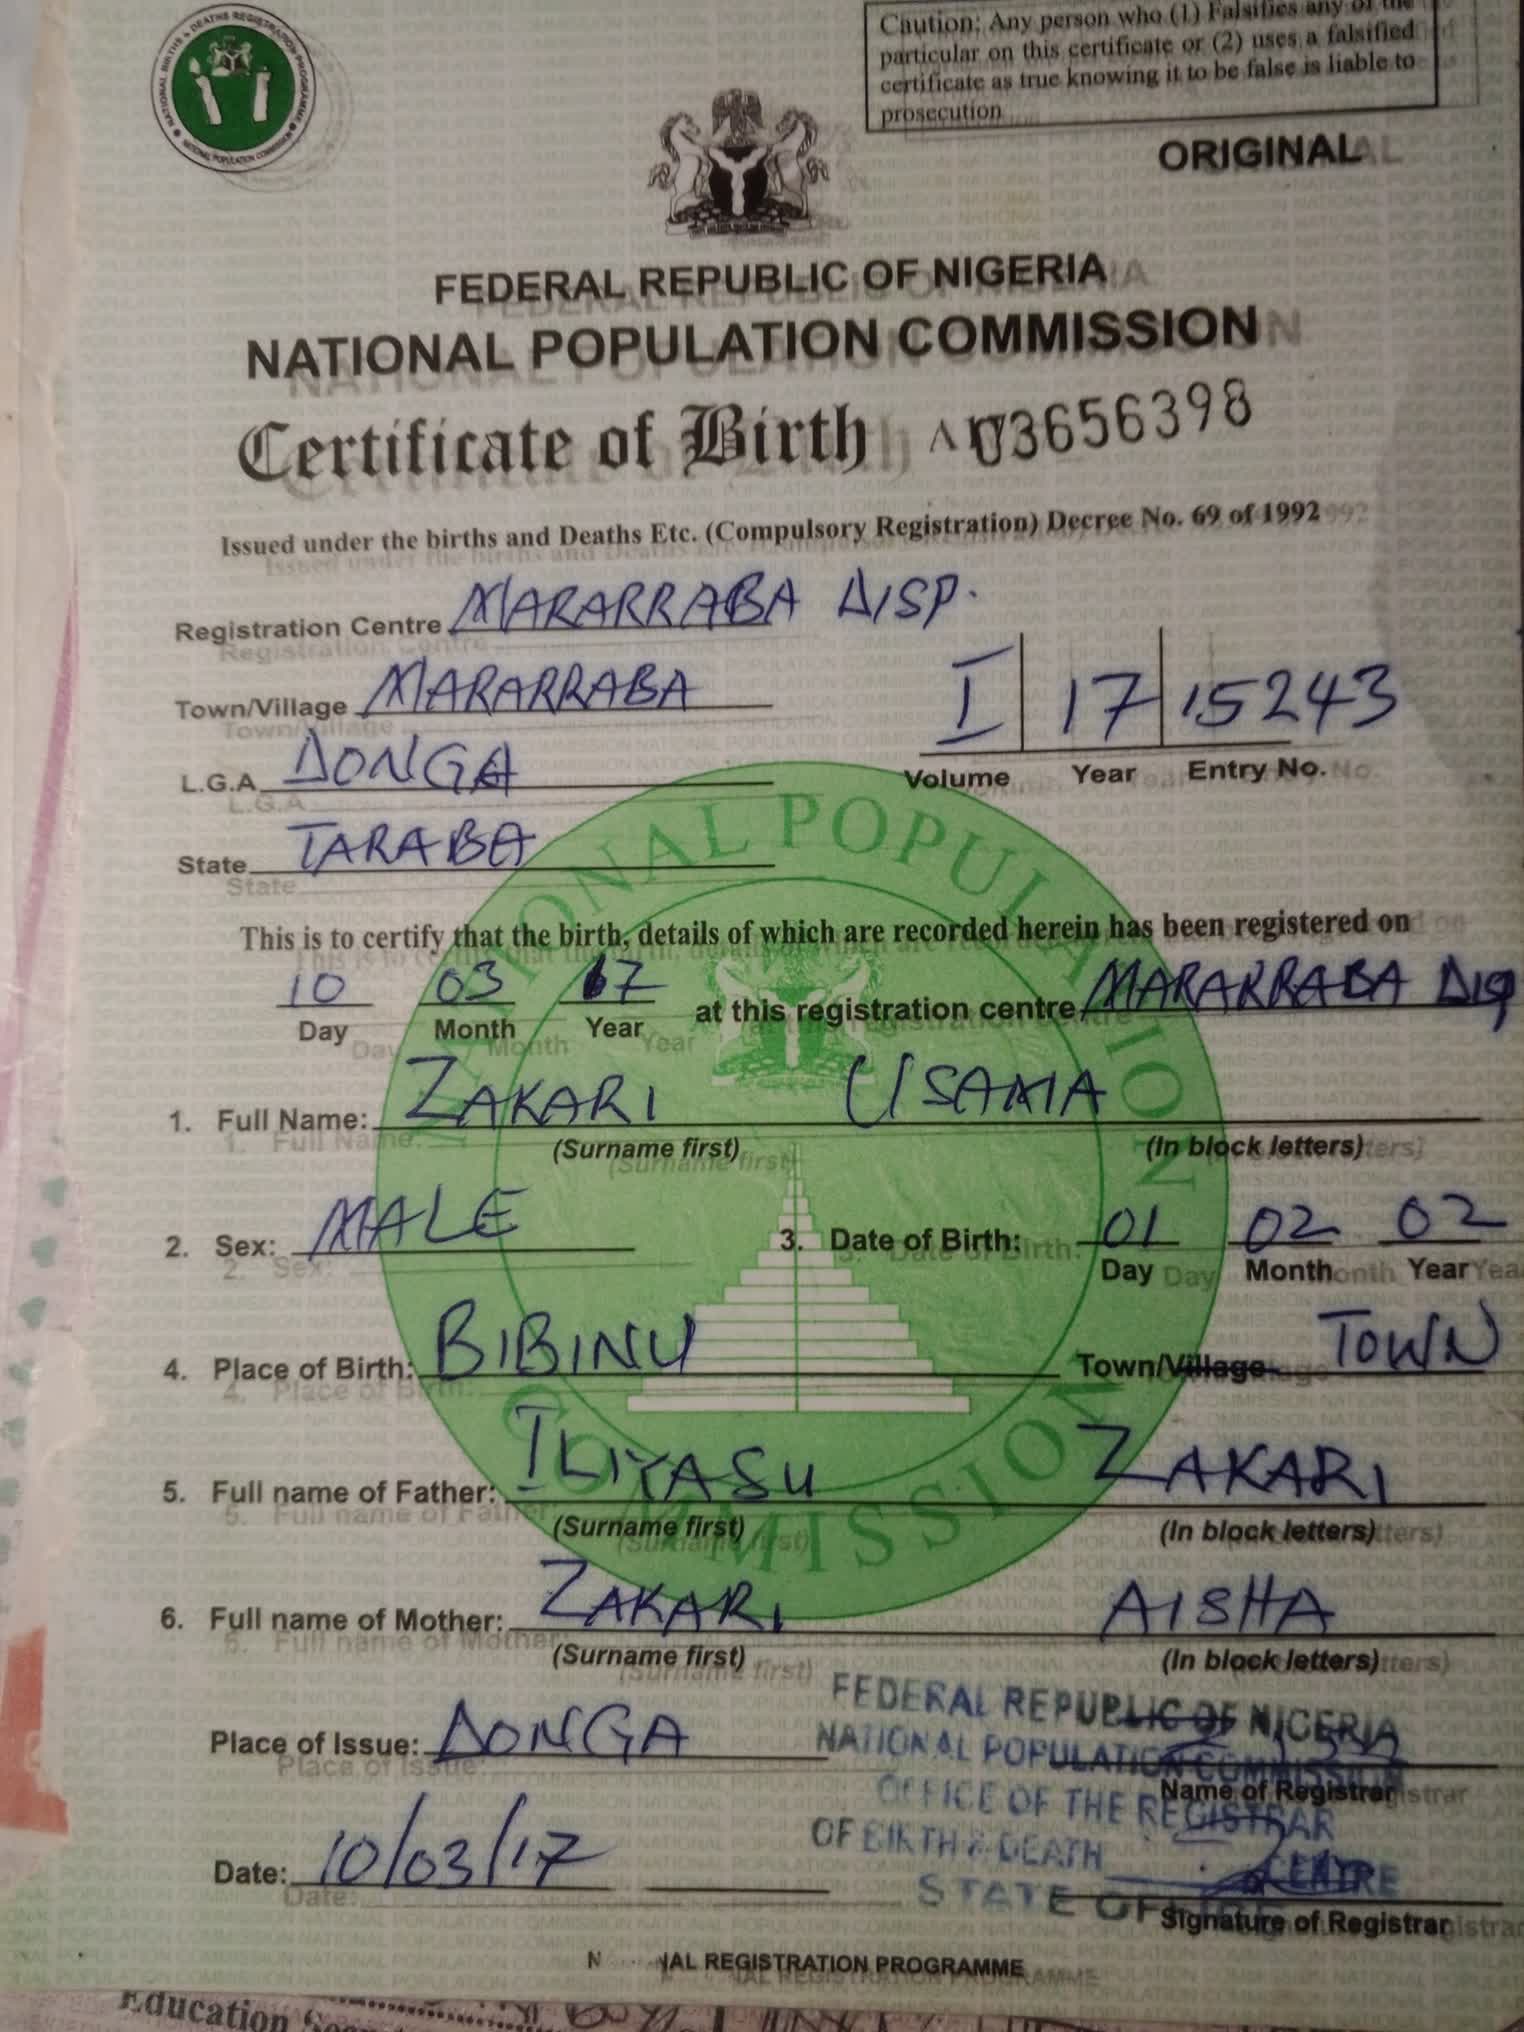 NATIONAL BIRTHS & DEATHS REGISTRATION PROGRAMME
NATIONAL POPULATION COMMISSION
Caution: Any person who (1) Falsifies any of the
particular on this certificate or (2) uses a falsified
certificate as true knowing it to be false is liable to
prosecution
ORIGINAL
FEDERAL REPUBLIC OF NIGERIA
NATIONAL POPULATION COMMISSION
Certificate of Birth 03656398
Issued under the births and Deaths Etc. (Compulsory Registration) Decree No. 69 of 1992
Registration Centre MARARRABA DISP.
Town/Village MARARRABA
I 17 15243
Volume Year Entry No.
L.G.A DONGA
State TARABA
This is to certify that the birth, details of which are recorded herein has been registered on
10 03 17 at this registration centre MARARRABA DISP
Day Month Year
1. Full Name: ZAKARI USAMA
(Surname first) (In block letters)
2. Sex: MALE 3. Date of Birth: 01 02 02
Day Month Year
4. Place of Birth: BIBINU Town/Village TOWN
5. Full name of Father: ILIYASU ZAKARI
(Surname first) (In block letters)
6. Full name of Mother: ZAKARI AISHA
(Surname first) (In block letters)
FEDERAL REPUBLIC OF NIGERIA
NATIONAL POPULATION COMMISSION
Place of Issue: DONGA
Name of Registrar
OFFICE OF THE REGISTRAR
OF BIRTH & DEATH
CENTRE
Date: 10/03/17
STATE OF
Signature of Registrar
NAL REGISTRATION PROGRAMME
Education